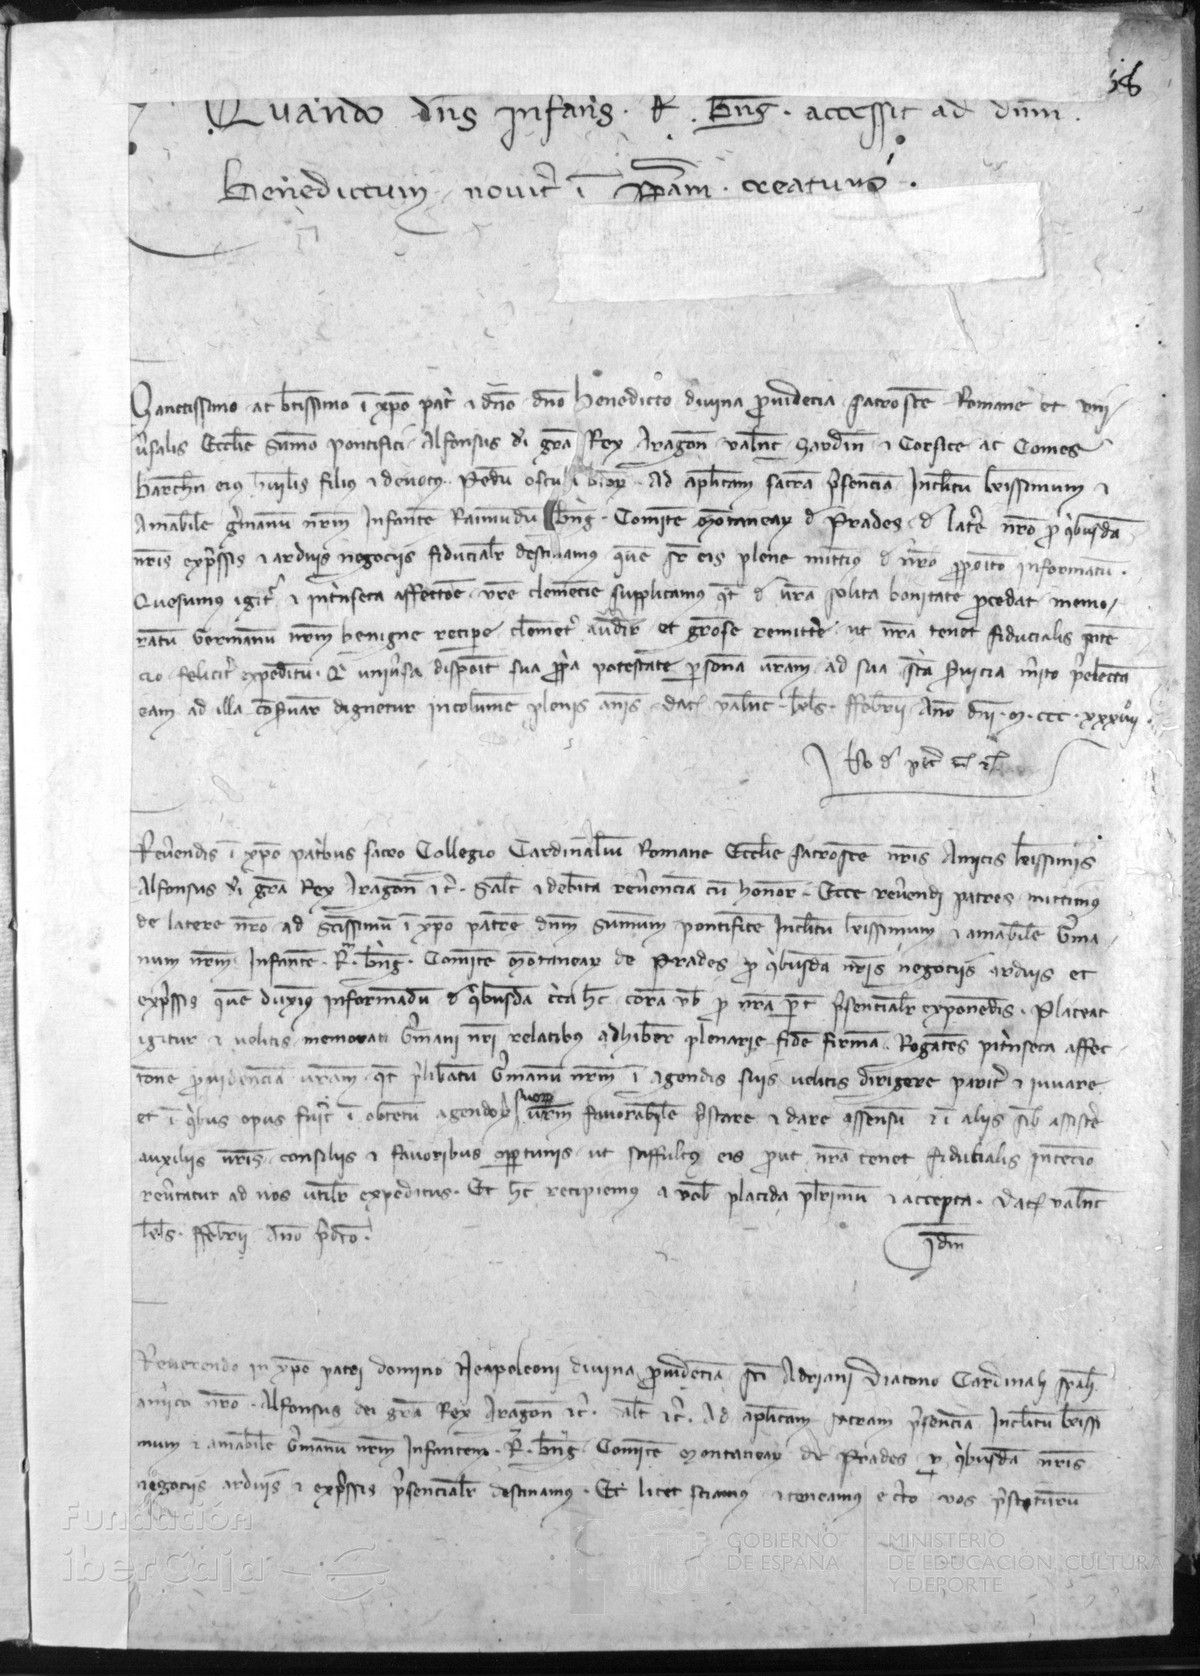 58
Quando dns Infans . R . bng . accessit ad dnm .
Benedictum novit i ppam creatum .
Sanctissimo ac btissimo i xpo pat & dno dno Benedicto divina providecia sacrosce Romane et uni
vsalis Ecclie sumo pontifici Alfonsus di gra Rex Aragon valnc Sardin & Corsice ac Comes
barchn eius huilis filius & devotus Pedu oscu btor Ad aplicam sacra psencia Inclitu krissimum &
Amabile gmanu nrm Infante Raimundu bng Comite Motanear d Prades d late nro p qbusda
nris expssis & arduis negociis fiducialr destinamus que sr eis plene mittim d nro pposito informatu .
Quesumus igit & intinseca affectoe vre clemecie supplicamus qt d vra solita bonitate pcedat memo
ratu Germanu nrm benigne recipe clemet audir et grose remitte ut nra tenet fiducialis inte
cio felicit expeditu . Q univsa dispoit sua ppa potestate psona vram ad sua sca svicia mito pelecta
eam ad illa cosvar dignetur incolume plenis anis Dat valnc kls ffebrii Ano dni M ccc xxx
Revendis i xpo patbus sacro Collegio Cardinaliu Romane Ecclie sacrosce nris Amicis krissimis
Alfonsus di gra Rex Aragon &c . Salt & debita revencia cu honor . Ecce revendi patres mittimus
de latere nro ad scissimu i xpo patre dnm sumum pontifice Inclitu krissimum & amabile Gma
num nrm Infante . R . bng . Comite Motanear de Prades p qbusda nris negociis arduis et
expssis que duxim informadu d qbusda cca hc cora vb p nra pt psencialr exponedis . Placeat
igitur & velitis memorati Gmani nri relatibus adhiber plenarie fide firma . Rogates pitinseca affec
tone providencia vram qt plibatu Gmanu nrm i agendis suis velitis dirigere parit & iuvare
et i qbus opus fuit i obtetu agendor suor vrm favorabile pstare & dare assensu & i aliis sib assiste
auxiliis vris consiliis & favoribus opportunis ut suffultus eis prout nra tenet fiducialis intecio
revtatur ad nos utilr expeditus . Et hc recipiemus a vob placida plimu & accepta . Dat valnc
kls . ffebrii Ano pdco .
Idm
Reverendo in xpo patri domino Neapoleoni divina providecia sci Adriani Diacono Cardinali spali
amico nro . Alfonsus dei gra Rex Aragon &c . salt &c . Ad aplicam sacram psencia Inclitu krissi
mum & amabile Gmanu nrm Infantem . R . bng Comite Montanear de Prades p qbusda nris
negociis arduis & expssis psencialr destinamus . Et licet sciamus & teneamus cto vos pstituru
Fundación
iberCaja
GOBIERNO
DE ESPAÑA
MINISTERIO
DE EDUCACIÓN, CULTURA
Y DEPORTE